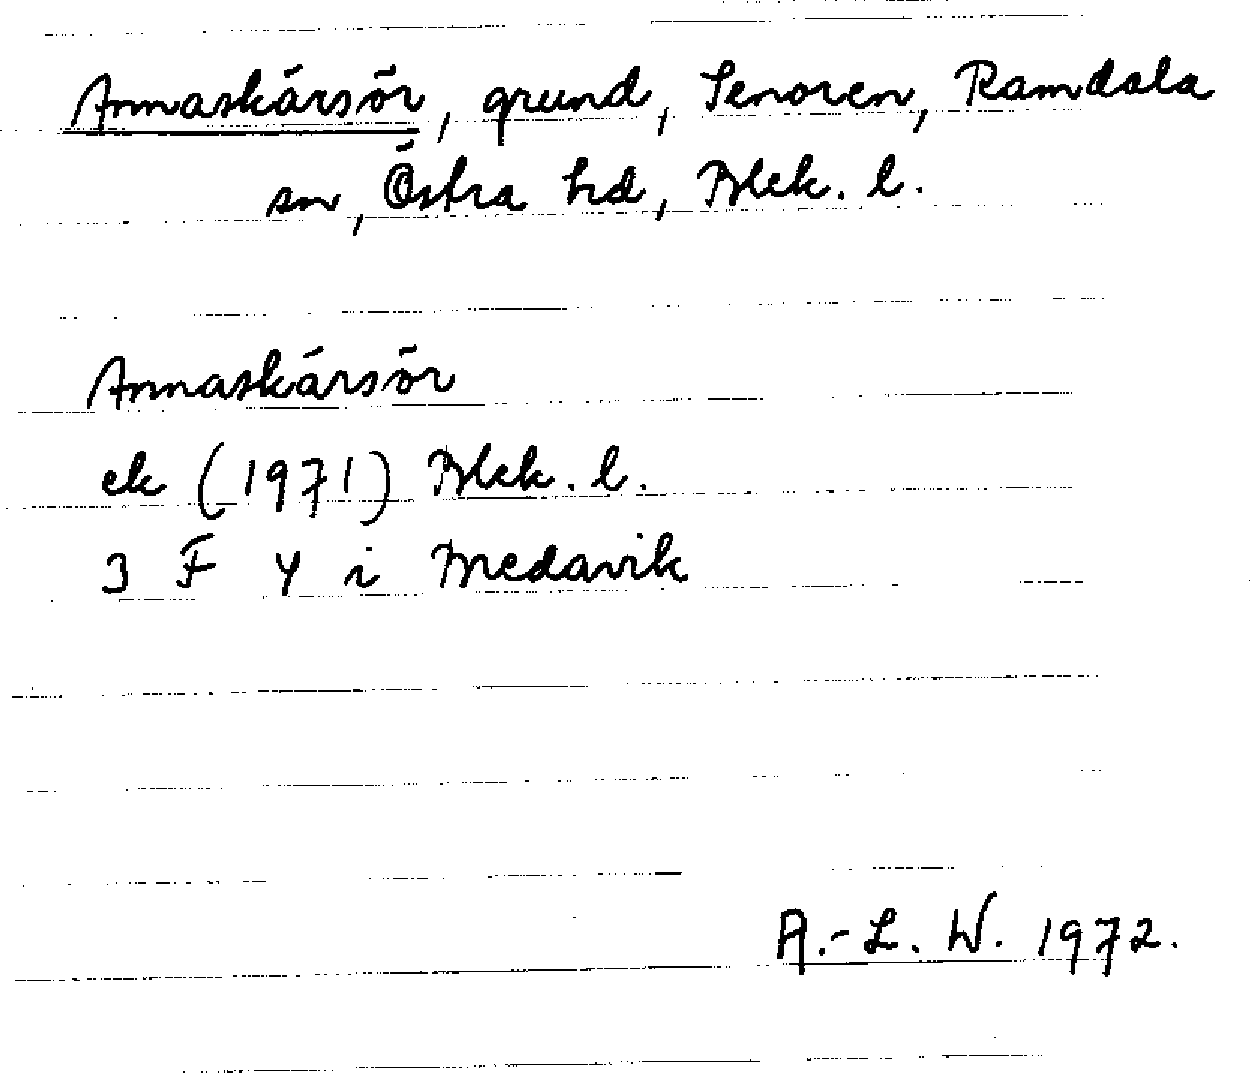 Annaskärsör, grund, Senoren, Ramdala
sn, Östra hd, Blek. l.
Annaskärsör
ek (1971) Blek. l.
3 F 4 i Bredavik
A.-L. W. 1972.